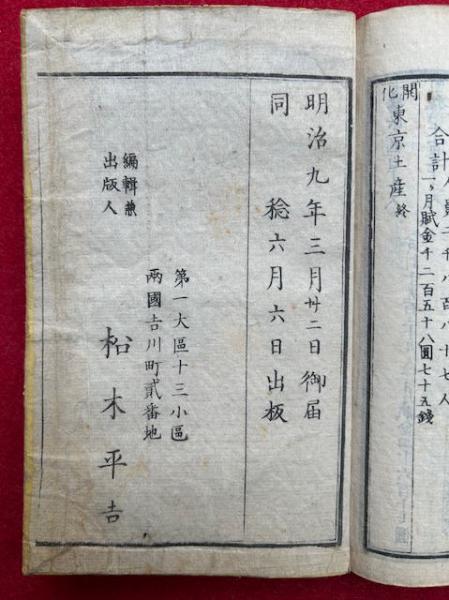 合計人員二千八百八十七人
一ヶ月賦金千二百五十八圓七十五錢
開化東京土産終
明治九年三月廿二日御届
同稔六月六日出板
第一大區十三小區
兩國吉川町貳番地
編輯兼
出版人
松木平吉